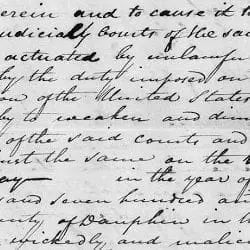 erein and to cause it to
udicial Courts of the sa
actuated by unlawfu
by the duty imposed on
on of the United State
ly to weaken and dim
of the said courts and
nst the same on the
ay in the year of
and seven hundred an
nty of Dauphin in th
wickedly and mali